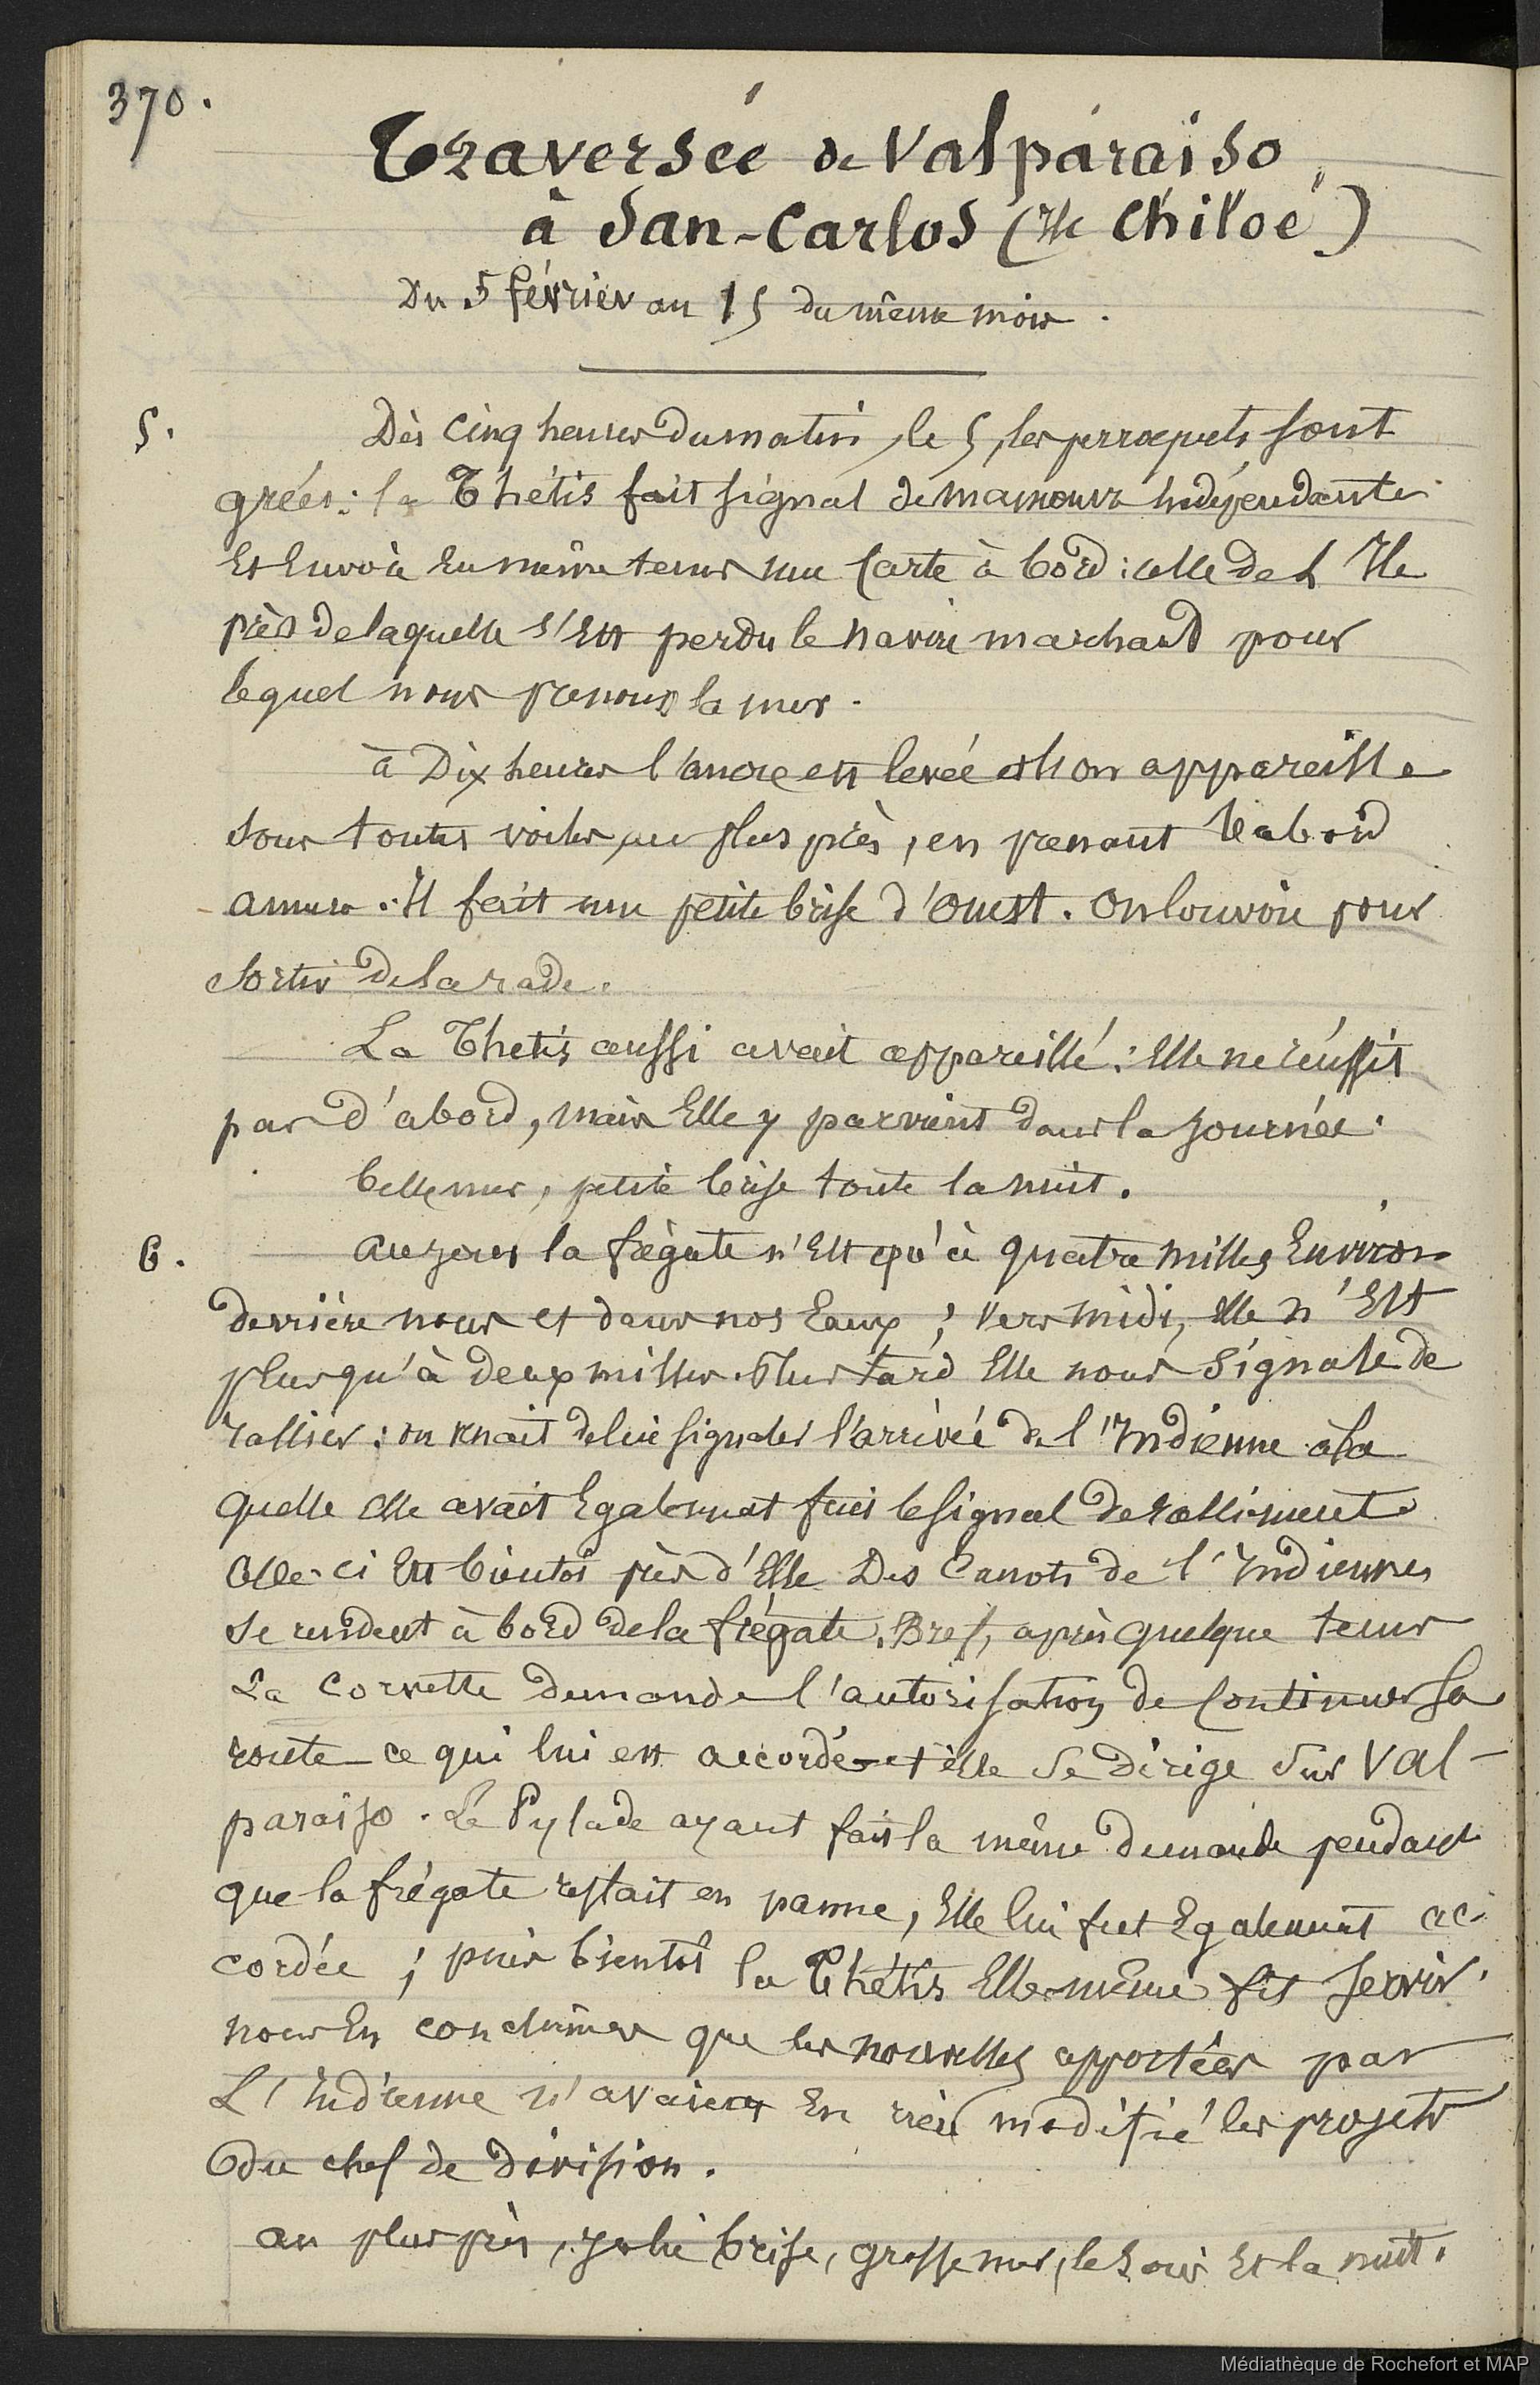 370.
Traversée de Valparaiso
à San-Carlos (Ile Chiloé)
Du 5 février au 15 du même mois.
5. Dès cinq heures du matin, le 5, les perroquets sont
gréés : la Thétis fait signal de manœuvre indépendante
Et Envoie En même tems une Carte à bord : celle de l'Ile
près de laquelle s'Est perdu le navire marchand pour
lequel nous prenons la mer.
à Dix heures l'ancre est levée et l'on appareille
sous toutes voiles, au plus près, en prenant babord
amures. Il fait une petite brise d'Ouest. On louvoie pour
sortir de la rade.
La Thetis aussi avait appareillé : Elle ne réussit
pas d'abord, mais Elle y parvient dans la journée.
belle mer, petite brise toute la nuit.
6. au jour la frégate n'Est qu'à quatre milles Environ
derrière nous et dans nos Eaux ; vers midi, elle n'Est
plus qu'à deux milles. Plus tard Elle nous signale de
rallier : on venait de lui signaler l'arrivée de l'Indienne à la
quelle elle avait Egalement fait le signal de ralliement.
Celle-ci Est bientôt près d'Elle. Des Canots de l'Indienne
se rendent à bord de la frégate. Bref, après quelque tems
La Corvette demande l'autorisation de Continuer sa
route – ce qui lui est accordé – et elle se dirige sur Val-
paraiso. Le Pylade ayant fait la même demande pendant
que la frégate restait en panne, Elle lui fut Egalement ac-
cordée ; puis bientôt la Thétis Elle-même fit servir.
nous En conclûmes que les nouvelles apportées par
L'Indienne n'avaient En rien modifié les projets
du chef de division.
au plus près, jolie brise, grosse mer, le soir Et la nuit.
Médiathèque de Rochefort et MAP